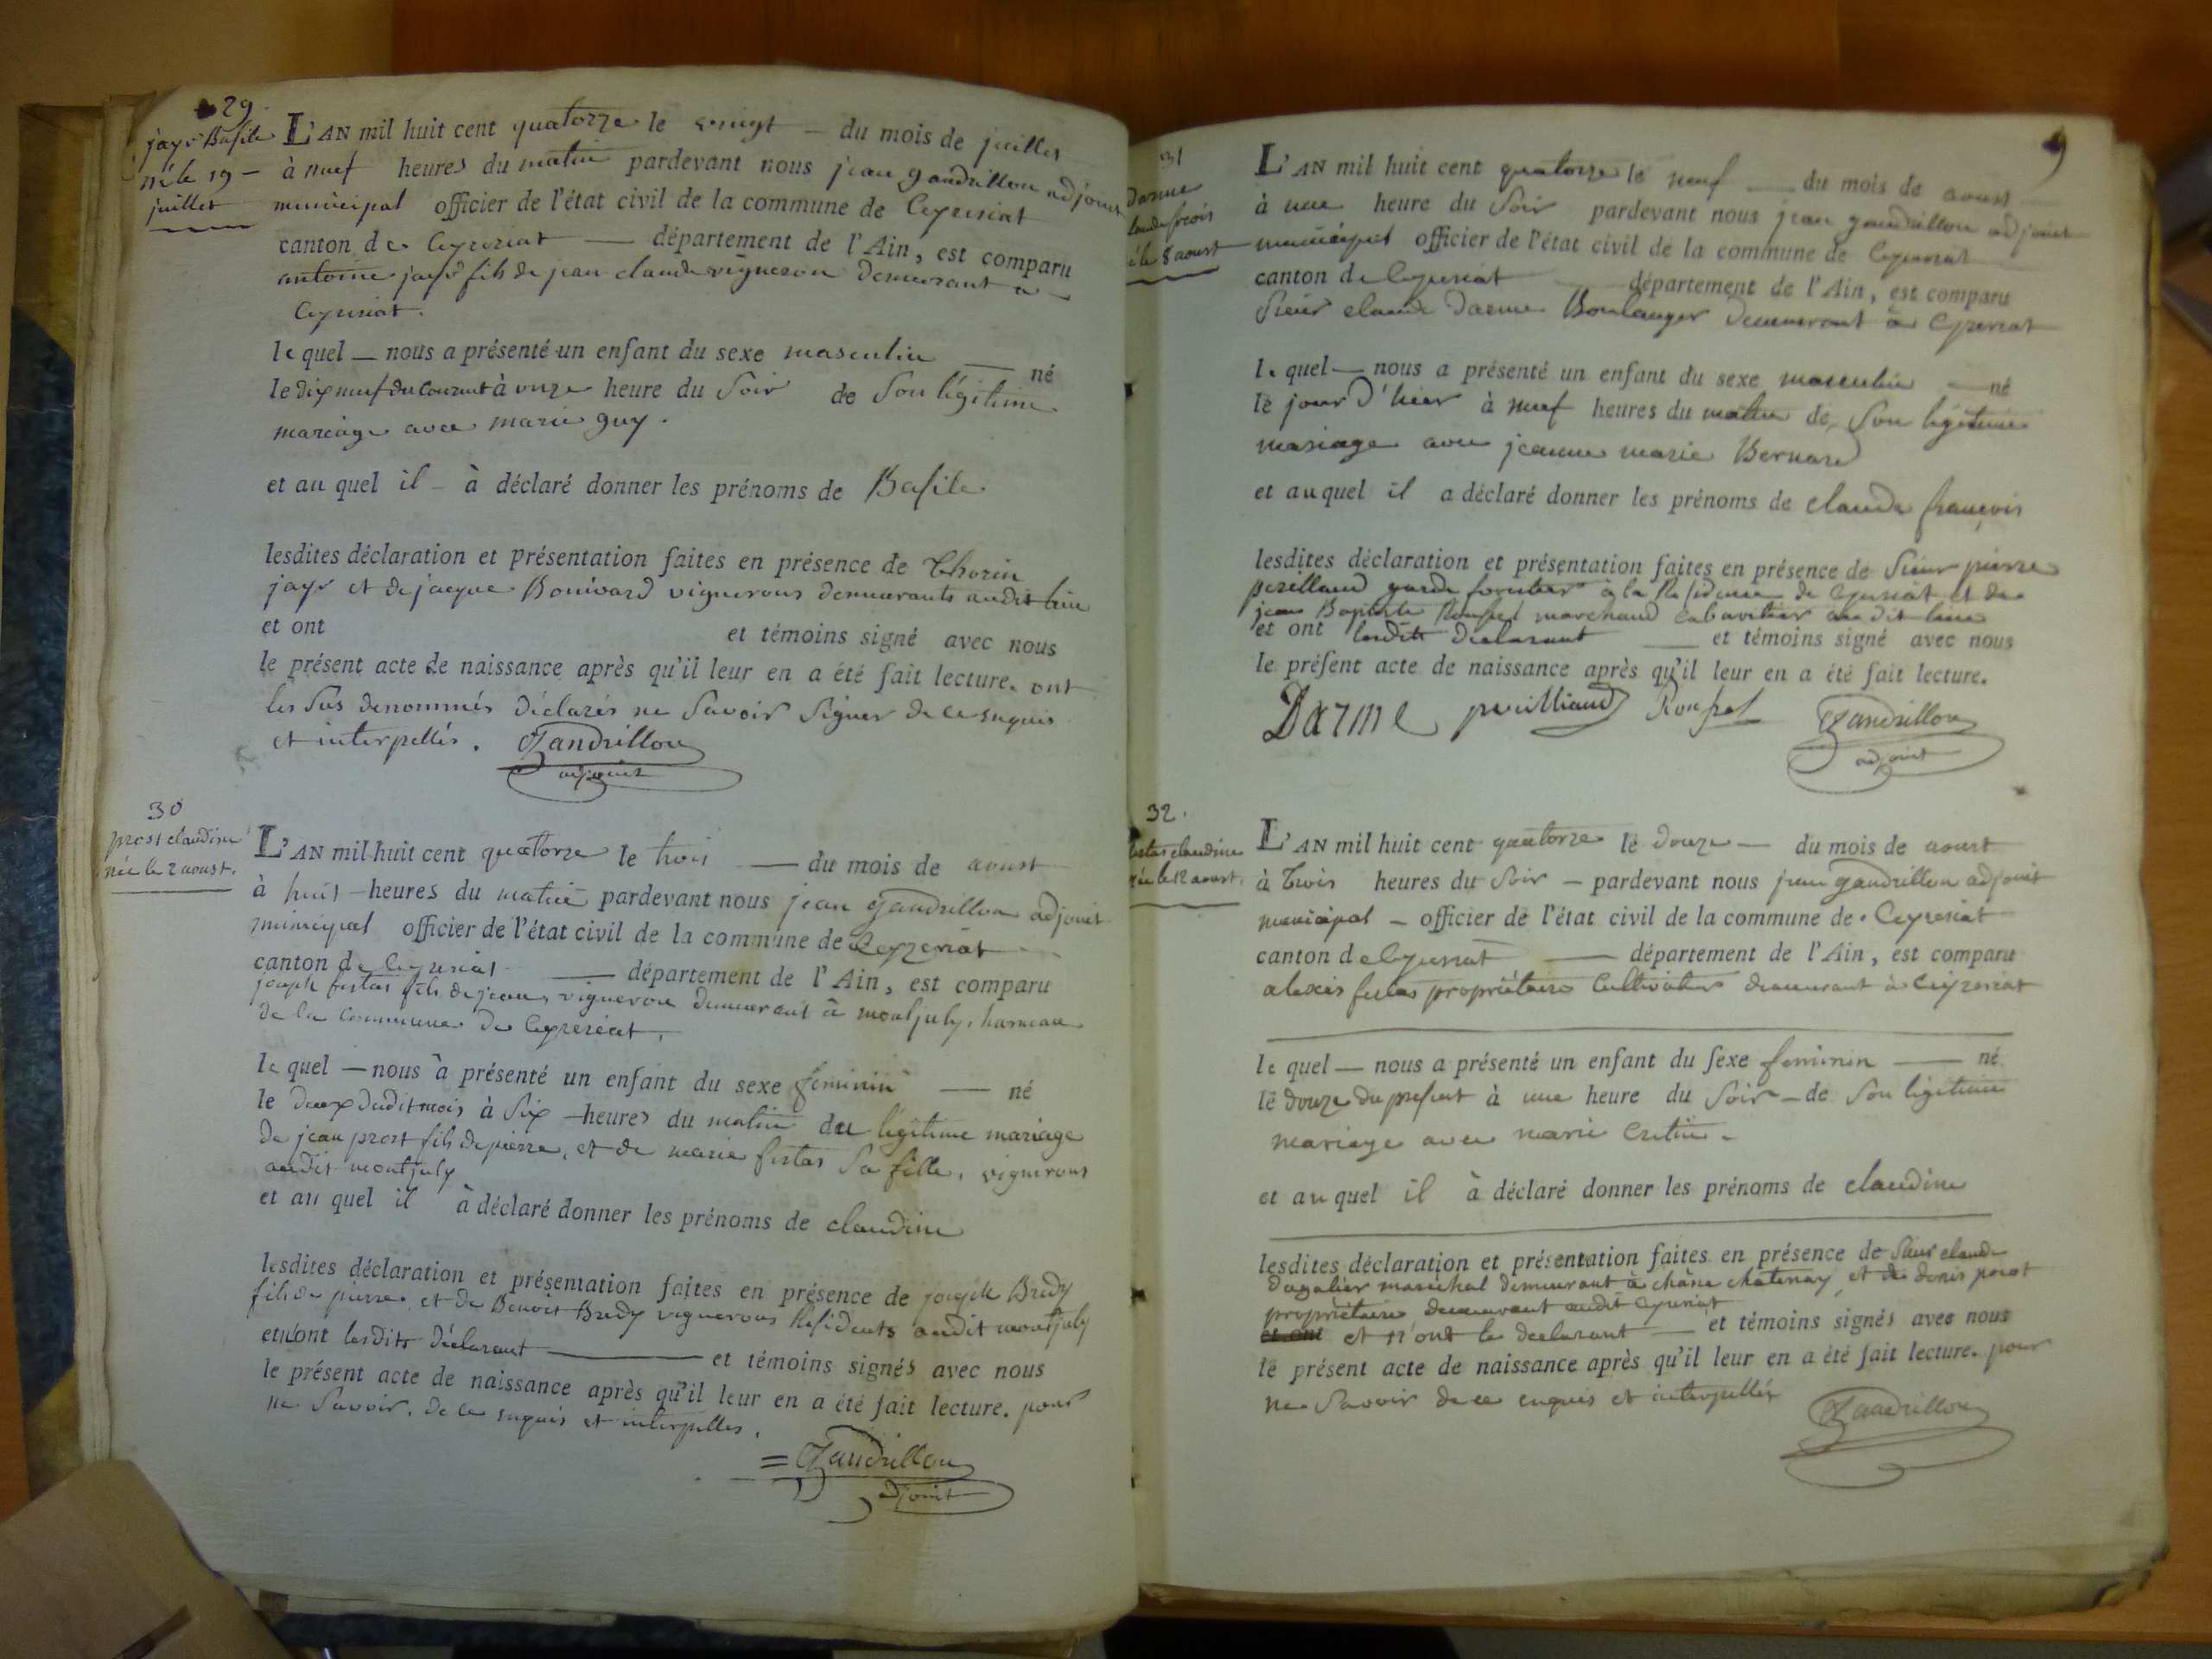 29.
jayr Basile
né le 19
juillet
L'AN mil huit cent quatorze le vingt du mois de juillet
à neuf heures du matin pardevant nous jean gandrillon adjoint
municipal officier de l'état civil de la commune de Ceyzeriat
canton de Ceyzeriat département de l'Ain, est comparu
antoine jayr fils de jean claude vigneron demeurant a
Ceyzeriat.
le quel nous a présenté un enfant du sexe masculin né
le dix neuf du Courant à onze heure du Soir de Son légitime
mariage avec marie guy.
et au quel il à déclaré donner les prénoms de Basile
lesdites déclaration et présentation faites en présence de Thorin
jayr et de jacque Bonivard vignerons demeurants audit lieu
et ont et témoins signé avec nous
le présent acte de naissance après qu'il leur en a été fait lecture. ont
les Sus denommés déclarés ne Savoir Signer de ce enquis
et interpellés. Gandrillon
adjoint
30
prost claudine
née le 2 aoust.
L'AN mil huit cent quatorze le trois du mois de aoust
à huit heures du matin pardevant nous jean gandrillon adjoint
municipal officier de l'état civil de la commune de Ceyzeriat
canton de Ceyzeriat département de l'Ain, est comparu
joseph festas fils de jean, vigneron demeurant à montjuly, hameau
de la Commune de Ceyzeriat.
le quel nous à présenté un enfant du sexe feminin né
le deux dudit mois à Six heures du matin du légitime mariage
de jean prost fils de pierre, et de marie festas Sa fille, vignerons
audit montjuly
et au quel il à déclaré donner les prénoms de claudine
lesdites déclaration et présentation faites en présence de joseph Bredy
fils de pierre, et de Benoit Bredy vignerons Residents audit montjuly
et n'ont lesdits déclarant et témoins signés avec nous
le présent acte de naissance après qu'il leur en a été fait lecture. pour
ne Savoir, de ce enquis et interpellés.
= Gandrillon
adjoint
9
31
Darme
aoust
L'AN mil huit cent quatorze le neuf du mois de aoust
à une heure du Soir pardevant nous jean gandrillon adjoint
municipal officier de l'état civil de la commune de Ceyzeriat
canton de Ceyzeriat département de l'Ain, est comparu
Sieur claude Darme Boulanger demeurant à Ceyzeriat
le quel nous a présenté un enfant du sexe masculin né
le jour d'hier à neuf heures du matin de Son légitime
mariage avec jeanne marie Bernard
et au quel il a déclaré donner les prénoms de claude françois
lesdites déclaration et présentation faites en présence de Sieur pierre
garde forestier à la Residence de Ceyzeriat et de
jean Baptiste marchand cabaretier au dit lieu
et ont lesdits declarant et témoins signé avec nous
le présent acte de naissance après qu'il leur en a été fait lecture.
Darme Gandrillon
adjoint
32.
claudine
née le 12 aoust.
L'AN mil huit cent quatorze le douze du mois de aoust
à trois heures du Soir pardevant nous jean gandrillon adjoint
municipal officier de l'état civil de la commune de Ceyzeriat
canton de Ceyzeriat département de l'Ain, est comparu
alexis festas propriétaire Cultivateur demeurant à Ceyzeriat
le quel nous a présenté un enfant du sexe feminin né
le douze du présent à une heure du Soir de Son légitime
mariage avec marie
et au quel il à déclaré donner les prénoms de claudine
lesdites déclaration et présentation faites en présence de Sieur claude
maréchal demeurant à et de denis
propriétaire demeurant audit Ceyzeriat
et ont et n'ont le declarant et témoins signés avec nous
le présent acte de naissance après qu'il leur en a été fait lecture. pour
ne Savoir de ce enquis et interpellés
Gandrillon